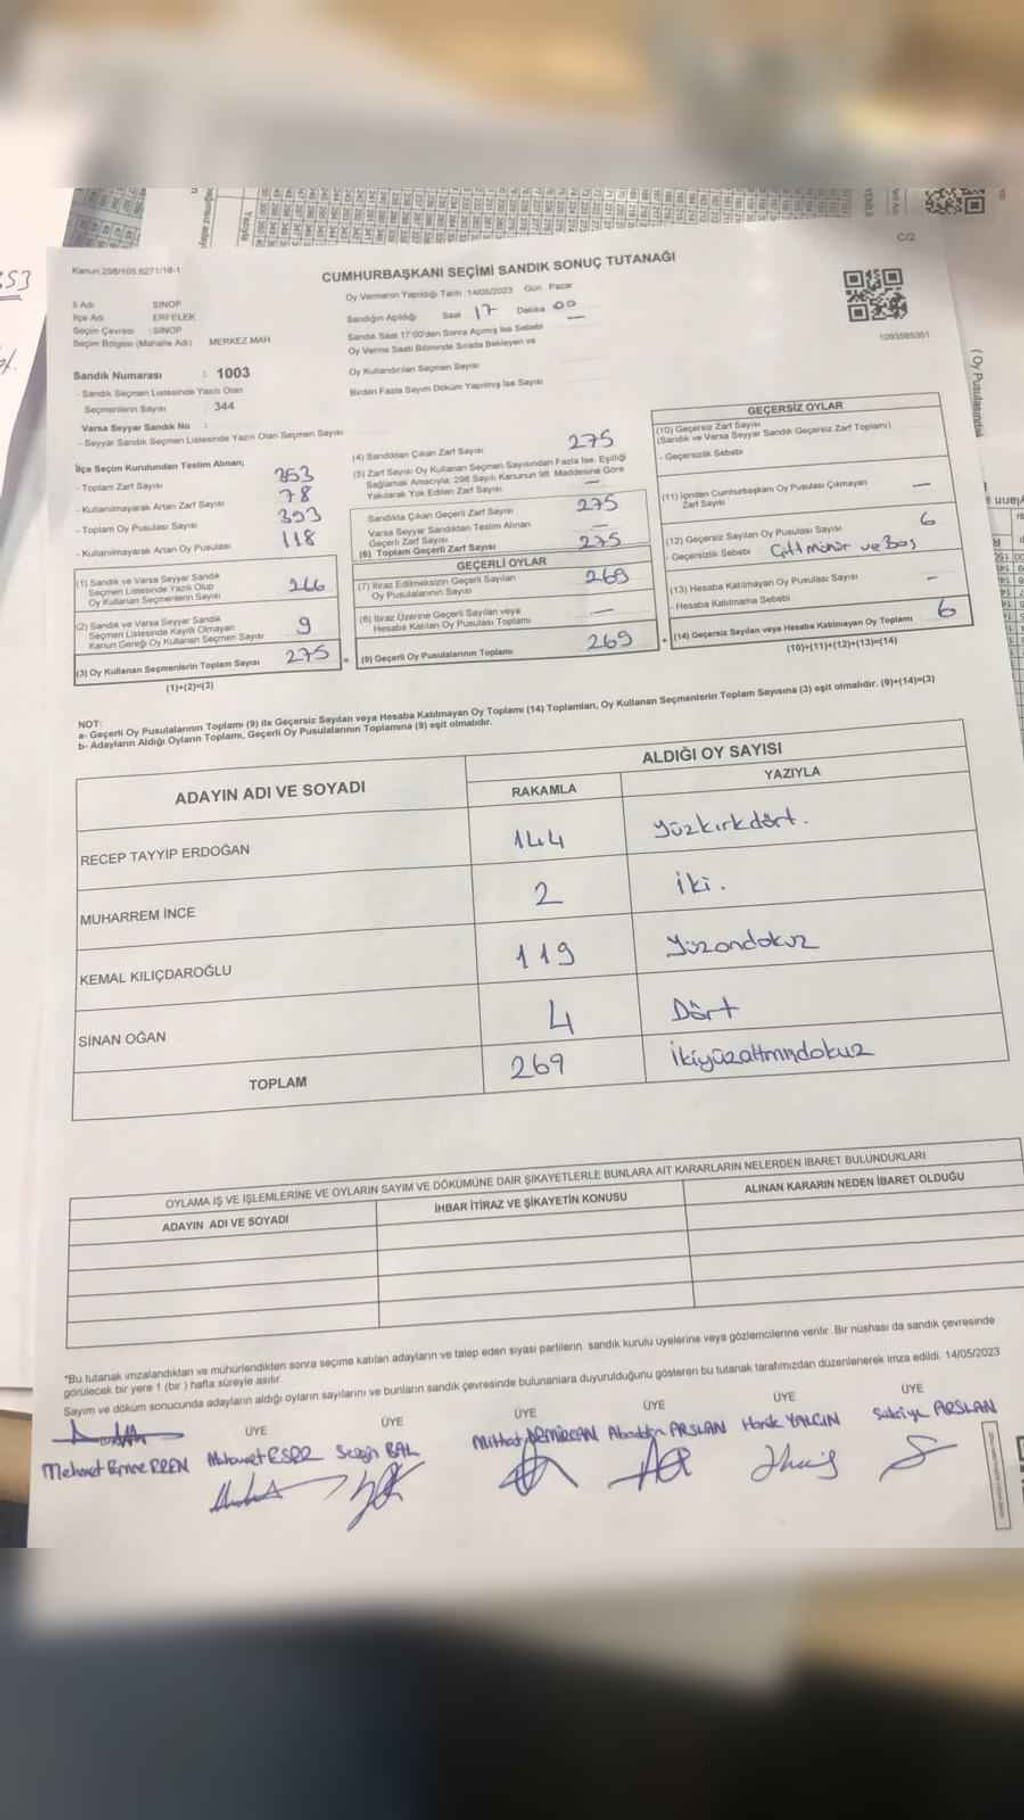 C/2
Kanun 298/105 6271/18-1
CUMHURBAŞKANI SEÇİMİ SANDIK SONUÇ TUTANAĞI
İl Adı SİNOP
İlçe Adı ERFELEK
Seçim Çevresi : SİNOP
Seçim Bölgesi (Mahalle Adı) MERKEZ MAH
Oy Vermenin Yapıldığı Tarih :14/05/2023 Gün Pazar
Sandığın Açıldığı Saat 17 Dakika 00
Sandık Saat 17:00'den Sonra Açılmış İse Sebebi —
Oy Verme Saati Bitiminde Sırada Bekleyen ve
Oy Kullandırılan Seçmen Sayısı
Birden Fazla Sayım Döküm Yapılmış İse Sayısı
1093585351
Sandık Numarası : 1003
- Sandık Seçmen Listesinde Yazılı Olan
Seçmenlerin Sayısı 344
Varsa Seyyar Sandık No :
- Seyyar Sandık Seçmen Listesinde Yazılı Olan Seçmen Sayısı
İlçe Seçim Kurulundan Teslim Alınan;
- Toplam Zarf Sayısı 353
- Kullanılmayarak Artan Zarf Sayısı 78
- Toplam Oy Pusulası Sayısı 393
- Kullanılmayarak Artan Oy Pusulası 118
(1) Sandık ve Varsa Seyyar Sandık
Seçmen Listesinde Yazılı Olup
Oy Kullanan Seçmenlerin Sayısı 266
(2) Sandık ve Varsa Seyyar Sandık
Seçmen Listesinde Kayıtlı Olmayan
Kanun Gereği Oy Kullanan Seçmen Sayısı 9
(3) Oy Kullanan Seçmenlerin Toplam Sayısı 275
(1)+(2)=(3)
(4) Sandıktan Çıkan Zarf Sayısı 275
(5) Zarf Sayısı Oy Kullanan Seçmen Sayısından Fazla İse, Eşitliği
Sağlamak Amacıyla, 298 Sayılı Kanunun 98. Maddesine Göre
Yakılarak Yok Edilen Zarf Sayısı —
Sandıkta Çıkan Geçerli Zarf Sayısı 275
Varsa Seyyar Sandıktan Teslim Alınan
Geçerli Zarf Sayısı —
(6) Toplam Geçerli Zarf Sayısı 275
GEÇERLİ OYLAR
(7) İtiraz Edilmeksizin Geçerli Sayılan
Oy Pusulalarının Sayısı 269
(8) İtiraz Üzerine Geçerli Sayılan veya
Hesaba Katılan Oy Pusulası Toplamı —
(9) Geçerli Oy Pusulalarının Toplamı 269
GEÇERSİZ OYLAR
(10) Geçersiz Zarf Sayısı
(Sandık ve Varsa Seyyar Sandık Geçersiz Zarf Toplamı)
- Geçersizlik Sebebi
(11) İçinden Cumhurbaşkanı Oy Pusulası Çıkmayan
Zarf Sayısı —
(12) Geçersiz Sayılan Oy Pusulası Sayısı 6
- Geçersizlik Sebebi Çift mühür ve Boş
(13) Hesaba Katılmayan Oy Pusulası Sayısı —
- Hesaba Katılmama Sebebi
(14) Geçersiz Sayılan veya Hesaba Katılmayan Oy Toplamı 6
(10)+(11)+(12)+(13)=(14)
NOT:
a- Geçerli Oy Pusulalarının Toplamı (9) ile Geçersiz Sayılan veya Hesaba Katılmayan Oy Toplamı (14) Toplamları, Oy Kullanan Seçmenlerin Toplam Sayısına (3) eşit olmalıdır. (9)+(14)=(3)
b- Adayların Aldığı Oyların Toplamı, Geçerli Oy Pusulalarının Toplamına (9) eşit olmalıdır.
ADAYIN ADI VE SOYADI ALDIĞI OY SAYISI
RAKAMLA YAZIYLA
RECEP TAYYİP ERDOĞAN 144 yüzkırkdört.
MUHARREM İNCE 2 iki.
KEMAL KILIÇDAROĞLU 119 yüzondokuz
SİNAN OĞAN 4 Dört
TOPLAM 269 ikiyüzaltmındokuz
OYLAMA İŞ VE İŞLEMLERİNE VE OYLARIN SAYIM VE DÖKÜMÜNE DAİR ŞİKAYETLERLE BUNLARA AİT KARARLARIN NELERDEN İBARET BULUNDUKLARI
ADAYIN ADI VE SOYADI İHBAR İTİRAZ VE ŞİKAYETİN KONUSU ALINAN KARARIN NEDEN İBARET OLDUĞU
*Bu tutanak imzalandıktan ve mühürlendikten sonra seçime katılan adayların ve talep eden siyasi partilerin sandık kurulu üyelerine veya gözlemcilerine verilir. Bir nüshası da sandık çevresinde
görülecek bir yere 1 (bir) hafta süreyle asılır.
Sayım ve döküm sonucunda adayların aldığı oyların sayılarını ve bunların sandık çevresinde bulunanlara duyurulduğunu gösteren bu tutanak tarafımızdan düzenlenerek imza edildi. 14/05/2023
ÜYE ÜYE ÜYE ÜYE ÜYE ÜYE
Mehmet Emre EREN Mehmet ESER Sezgin BAL Mithat DEMİRCAN Alaaddin ARSLAN Harik YALÇIN Sakiye ARSLAN
(Oy Pusulasındaki